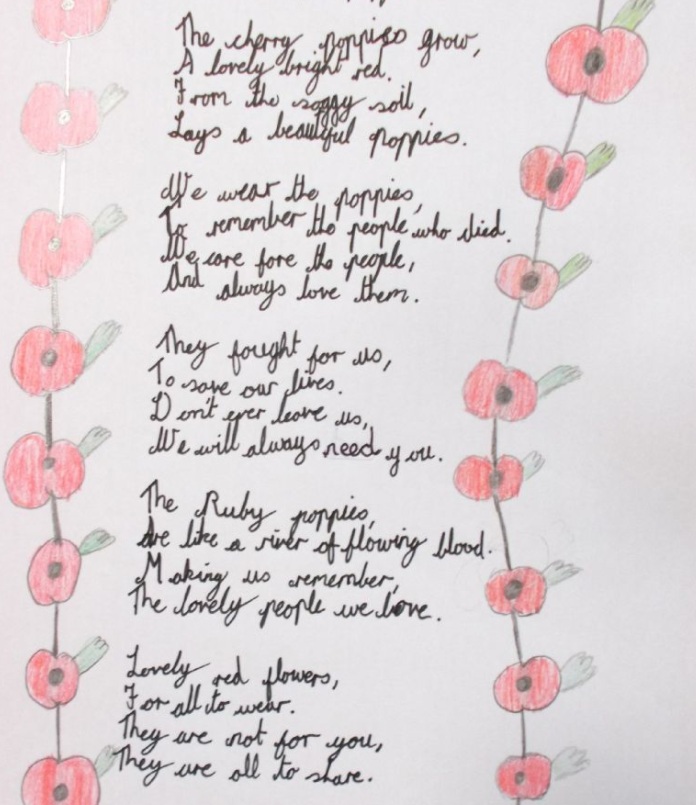 The cherry poppies grow,
A lovely bright red.
From the soggy soil,
Lays a beautiful poppies.
We wear the poppies,
To remember the people who died.
We care fore the people,
And always love them.
They fought for us,
To save our lives.
Don't ever leave us,
We will always need you.
The Ruby poppies,
Are like a river of flowing blood.
Making us remember,
The lovely people we love.
Lovely red flowers,
For all to wear.
They are not for you,
They are all to share.